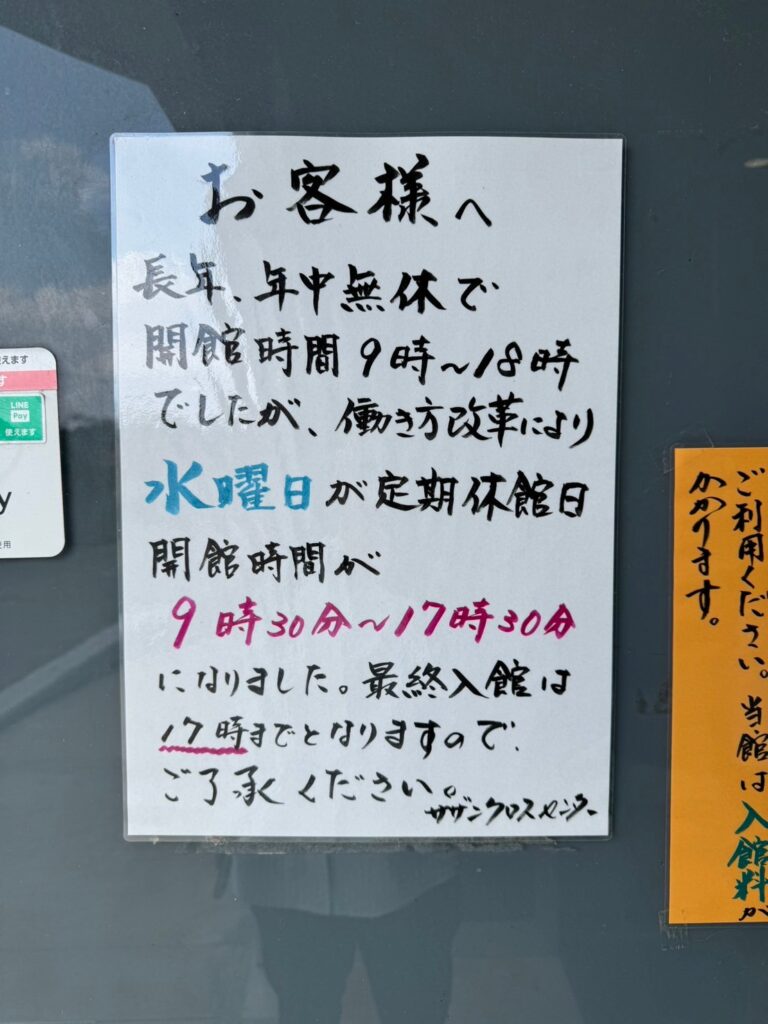 お客様へ
長年、年中無休で
開館時間9時～18時
でしたが、働き方改革により
水曜日が定期休館日
開館時間が
9時30分～17時30分
になりました。最終入館は
17時までとなりますので、
ご了承ください。
サザンクロスセンター
使えます
す
LINE
Pay
使えます
y
使用
ご利用ください。当館は入館料が
かかります。